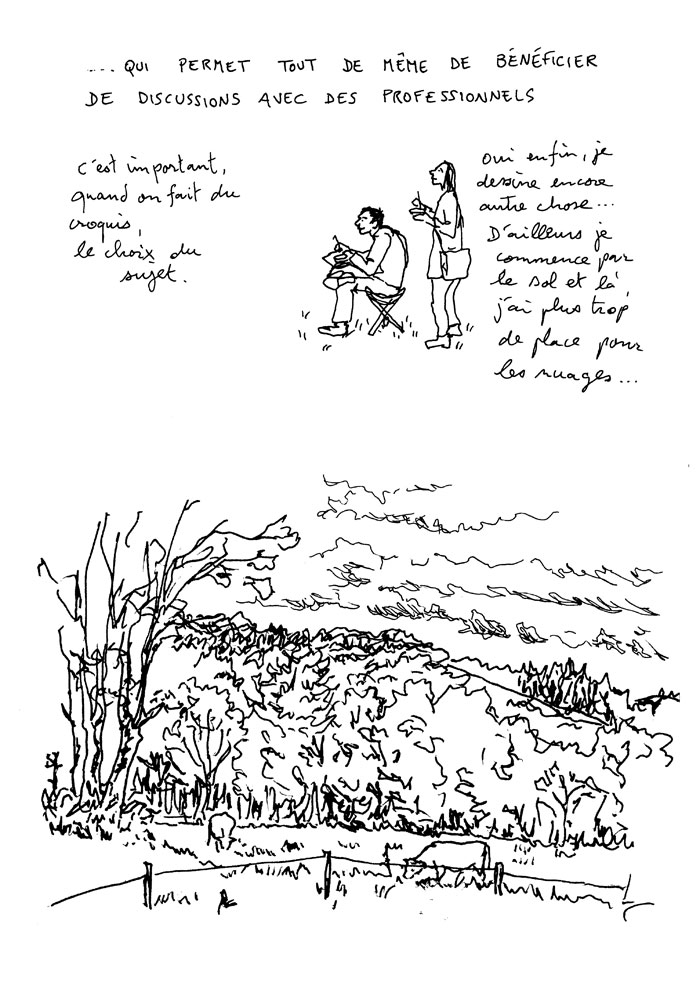 ... QUI PERMET TOUT DE MÊME DE BÉNÉFICIER
DE DISCUSSIONS AVEC DES PROFESSIONNELS
c'est important,
quand on fait du
croquis,
le choix du
sujet.
oui enfin, je
dessine encore
autre chose...
D'ailleurs je
commence par
le sol et là,
j'ai plus trop
de place pour
les nuages...